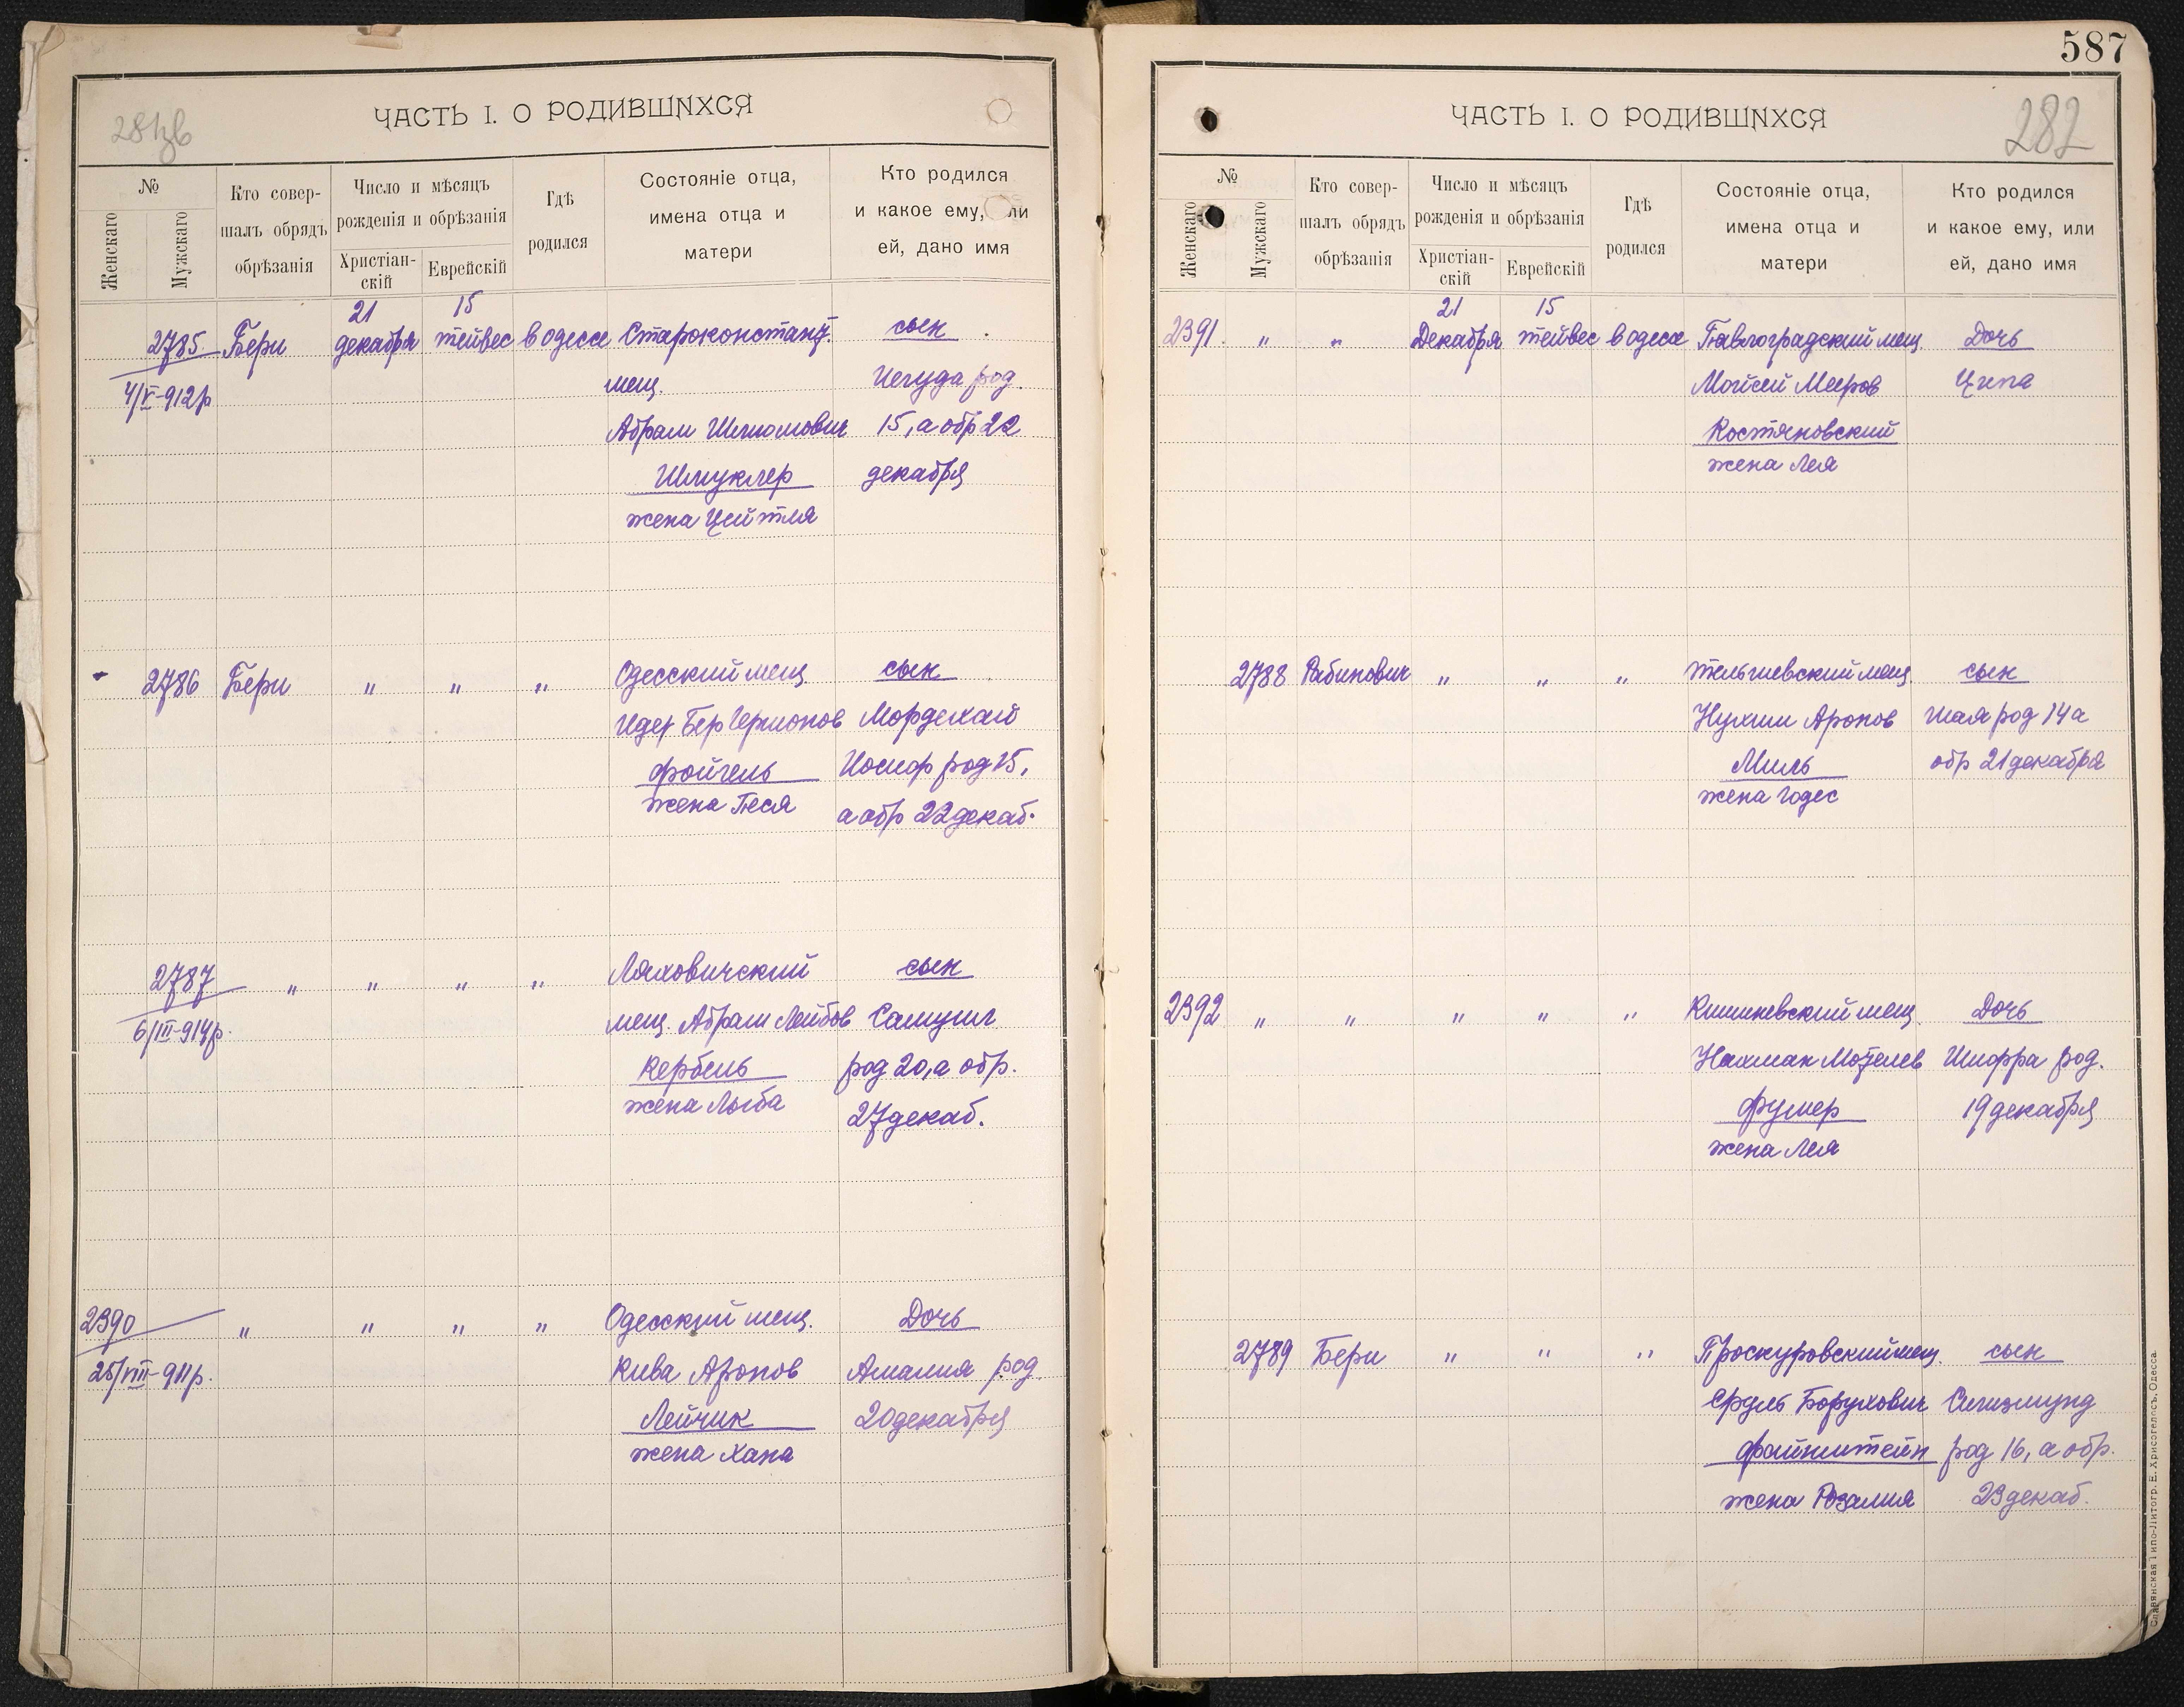 ЧАСТЬ I. О РОДИВШИХСЯ
№
Женскаго
Мужскаго
Кто совер-
шалъ обрядъ
обрѣзанія
Число и мѣсяцъ
рожденія и обрѣзанія
Христіан-
скій
Еврейскій
Гдѣ
родился
Состояніе отца,
имена отца и
матери
Кто родился
и какое ему, или
ей, дано имя
21 15
2785 Бери декабря тейвес в одессе Староконстант. сын
4/V-912р мещ. Иегуда род.
Абрам Шлиомович 15, а обр 22
Шмуклер декабря
жена Цейтля
2786 Бери " " " Одесский мещ сын
Бер Мордехай
Фойгель Иосиф род 15,
жена Песя а обр 22 декаб.
2787 " " " " Ляховичский сын
6/III-914р. мещ. Абрам Лейбов Самуил
Кербель род 20, а обр.
жена Лыба 27 декаб.
2390 " " " " Одесский мещ. Дочь
25/VIII-911р. Кива Аронов Амалия род
Лейчик 20 декабря
жена Хана
587
ЧАСТЬ I. О РОДИВШИХСЯ
282
№
Женскаго
Мужскаго
Кто совер-
шалъ обрядъ
обрѣзанія
Число и мѣсяцъ
рожденія и обрѣзанія
Христіан-
скій
Еврейскій
Гдѣ
родился
Состояніе отца,
имена отца и
матери
Кто родился
и какое ему, или
ей, дано имя
21 15
2391. " " Декабря тейвес в одессе Павлоградский мещ. Дочь
Мойсей Мееров Ципа
Костяновский
жена Лея
2788 Рабинович " " " тельшевский мещ. сын
Нухим Аронов шая род 14 а
Миль обр 21 декабря
жена Годес
2392 " " " " " Кишиневский мещ. Дочь
Нахман Мотелев Шифра род.
Фумер 19 декабря
жена Лея
2789 Бери " " " Проскуровский мещ. сын
Сруль Борухович Сигизмунд
Файнштейн род 16, а обр.
жена Розалия 23 декаб.
Славянская Типо-Литогр. Е. Хрисогелосъ, Одесса.